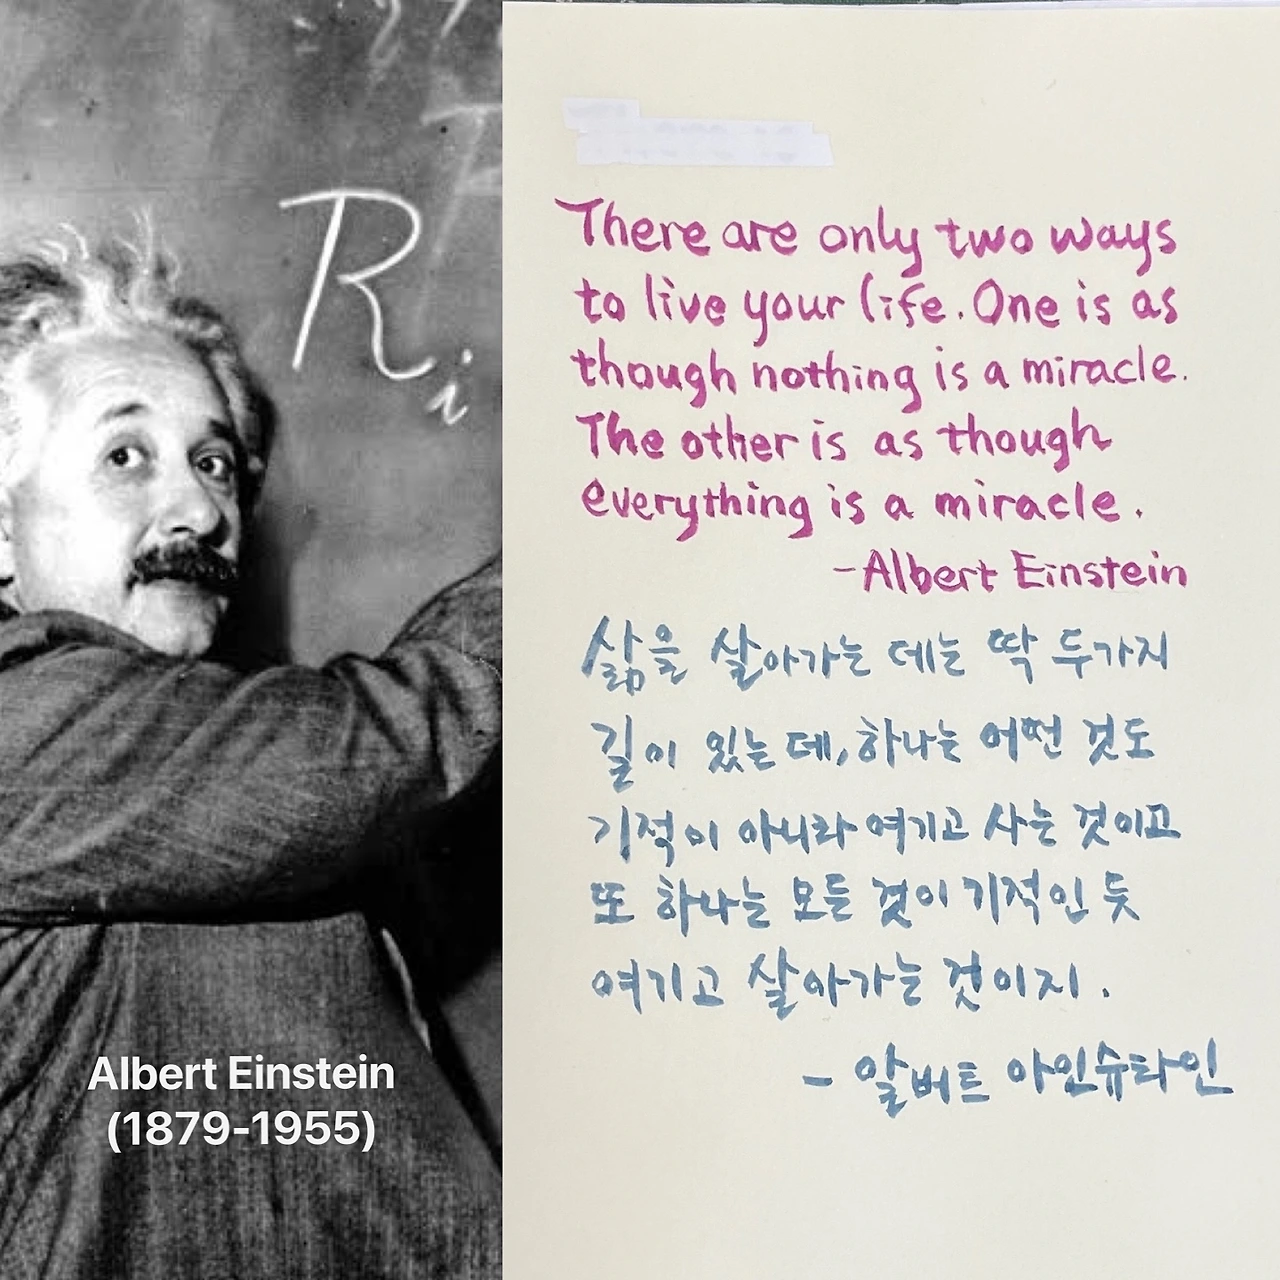 Ri
There are only two ways
to live your life. One is as
though nothing is a miracle.
The other is as though
everything is a miracle.
-Albert Einstein
삶을 살아가는 데는 딱 두가지
길이 있는데, 하나는 어떤 것도
기적이 아니라 여기고 사는 것이고
또 하나는 모든 것이 기적인 듯
여기고 살아가는 것이지.
- 알버트 아인슈타인
Albert Einstein
(1879-1955)